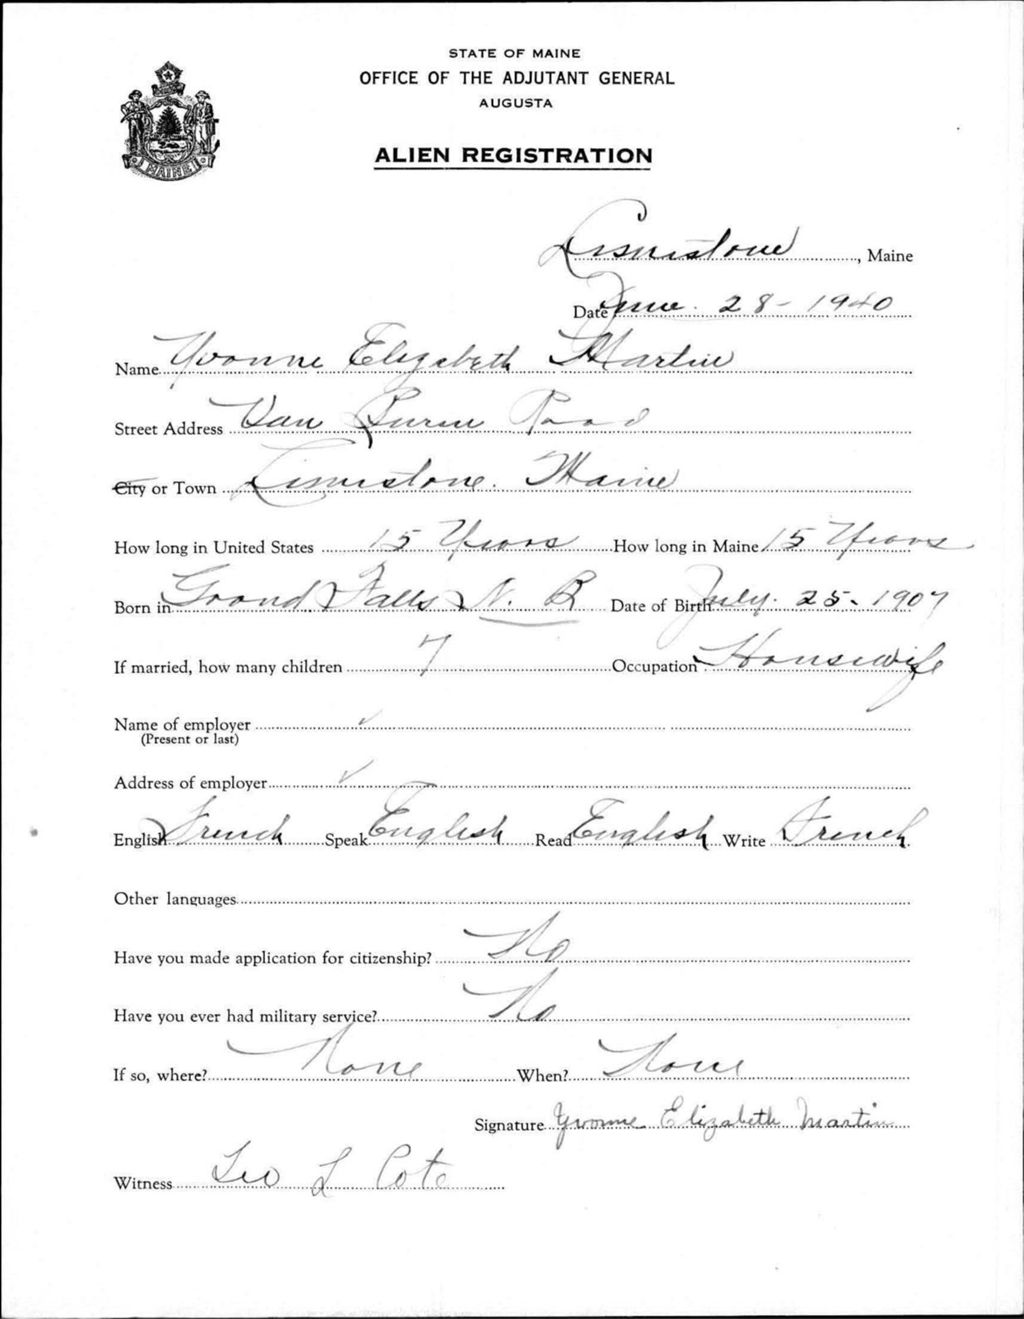 STATE OF MAINE
OFFICE OF THE ADJUTANT GENERAL
AUGUSTA
MAINE
ALIEN REGISTRATION
Limestone, Maine
Date June 28 - 1940
Name Yvonne Elizabeth Martin
Street Address Van Buren Road
City or Town Limestone. Maine
How long in United States 15 Years How long in Maine 15 Years
Born in Grand Falls N. B Date of Birth July. 25 - 1907
If married, how many children 7 Occupation Housewife
Name of employer ✓
(Present or last)
Address of employer ✓
English French Speak English Read English Write French
Other languages
Have you made application for citizenship? No
Have you ever had military service? No
If so, where? None When? None
Signature Yvonne Elizabeth Martin
Witness Leo L Cote